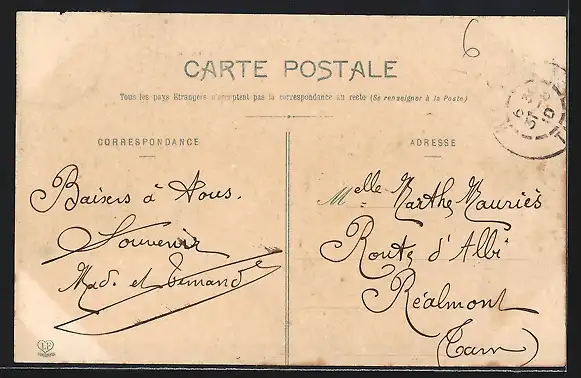 6
CARTE POSTALE
Tous les pays Etrangers n'acceptent pas la correspondance au recto (Se renseigner à la Poste)
CORRESPONDANCE
Baisers à Tous.
Souvenir
Mad. et Fernande
ADRESSE
Melle Marthe Mauriès
Route d'Albi
Réalmont
(Tarn)